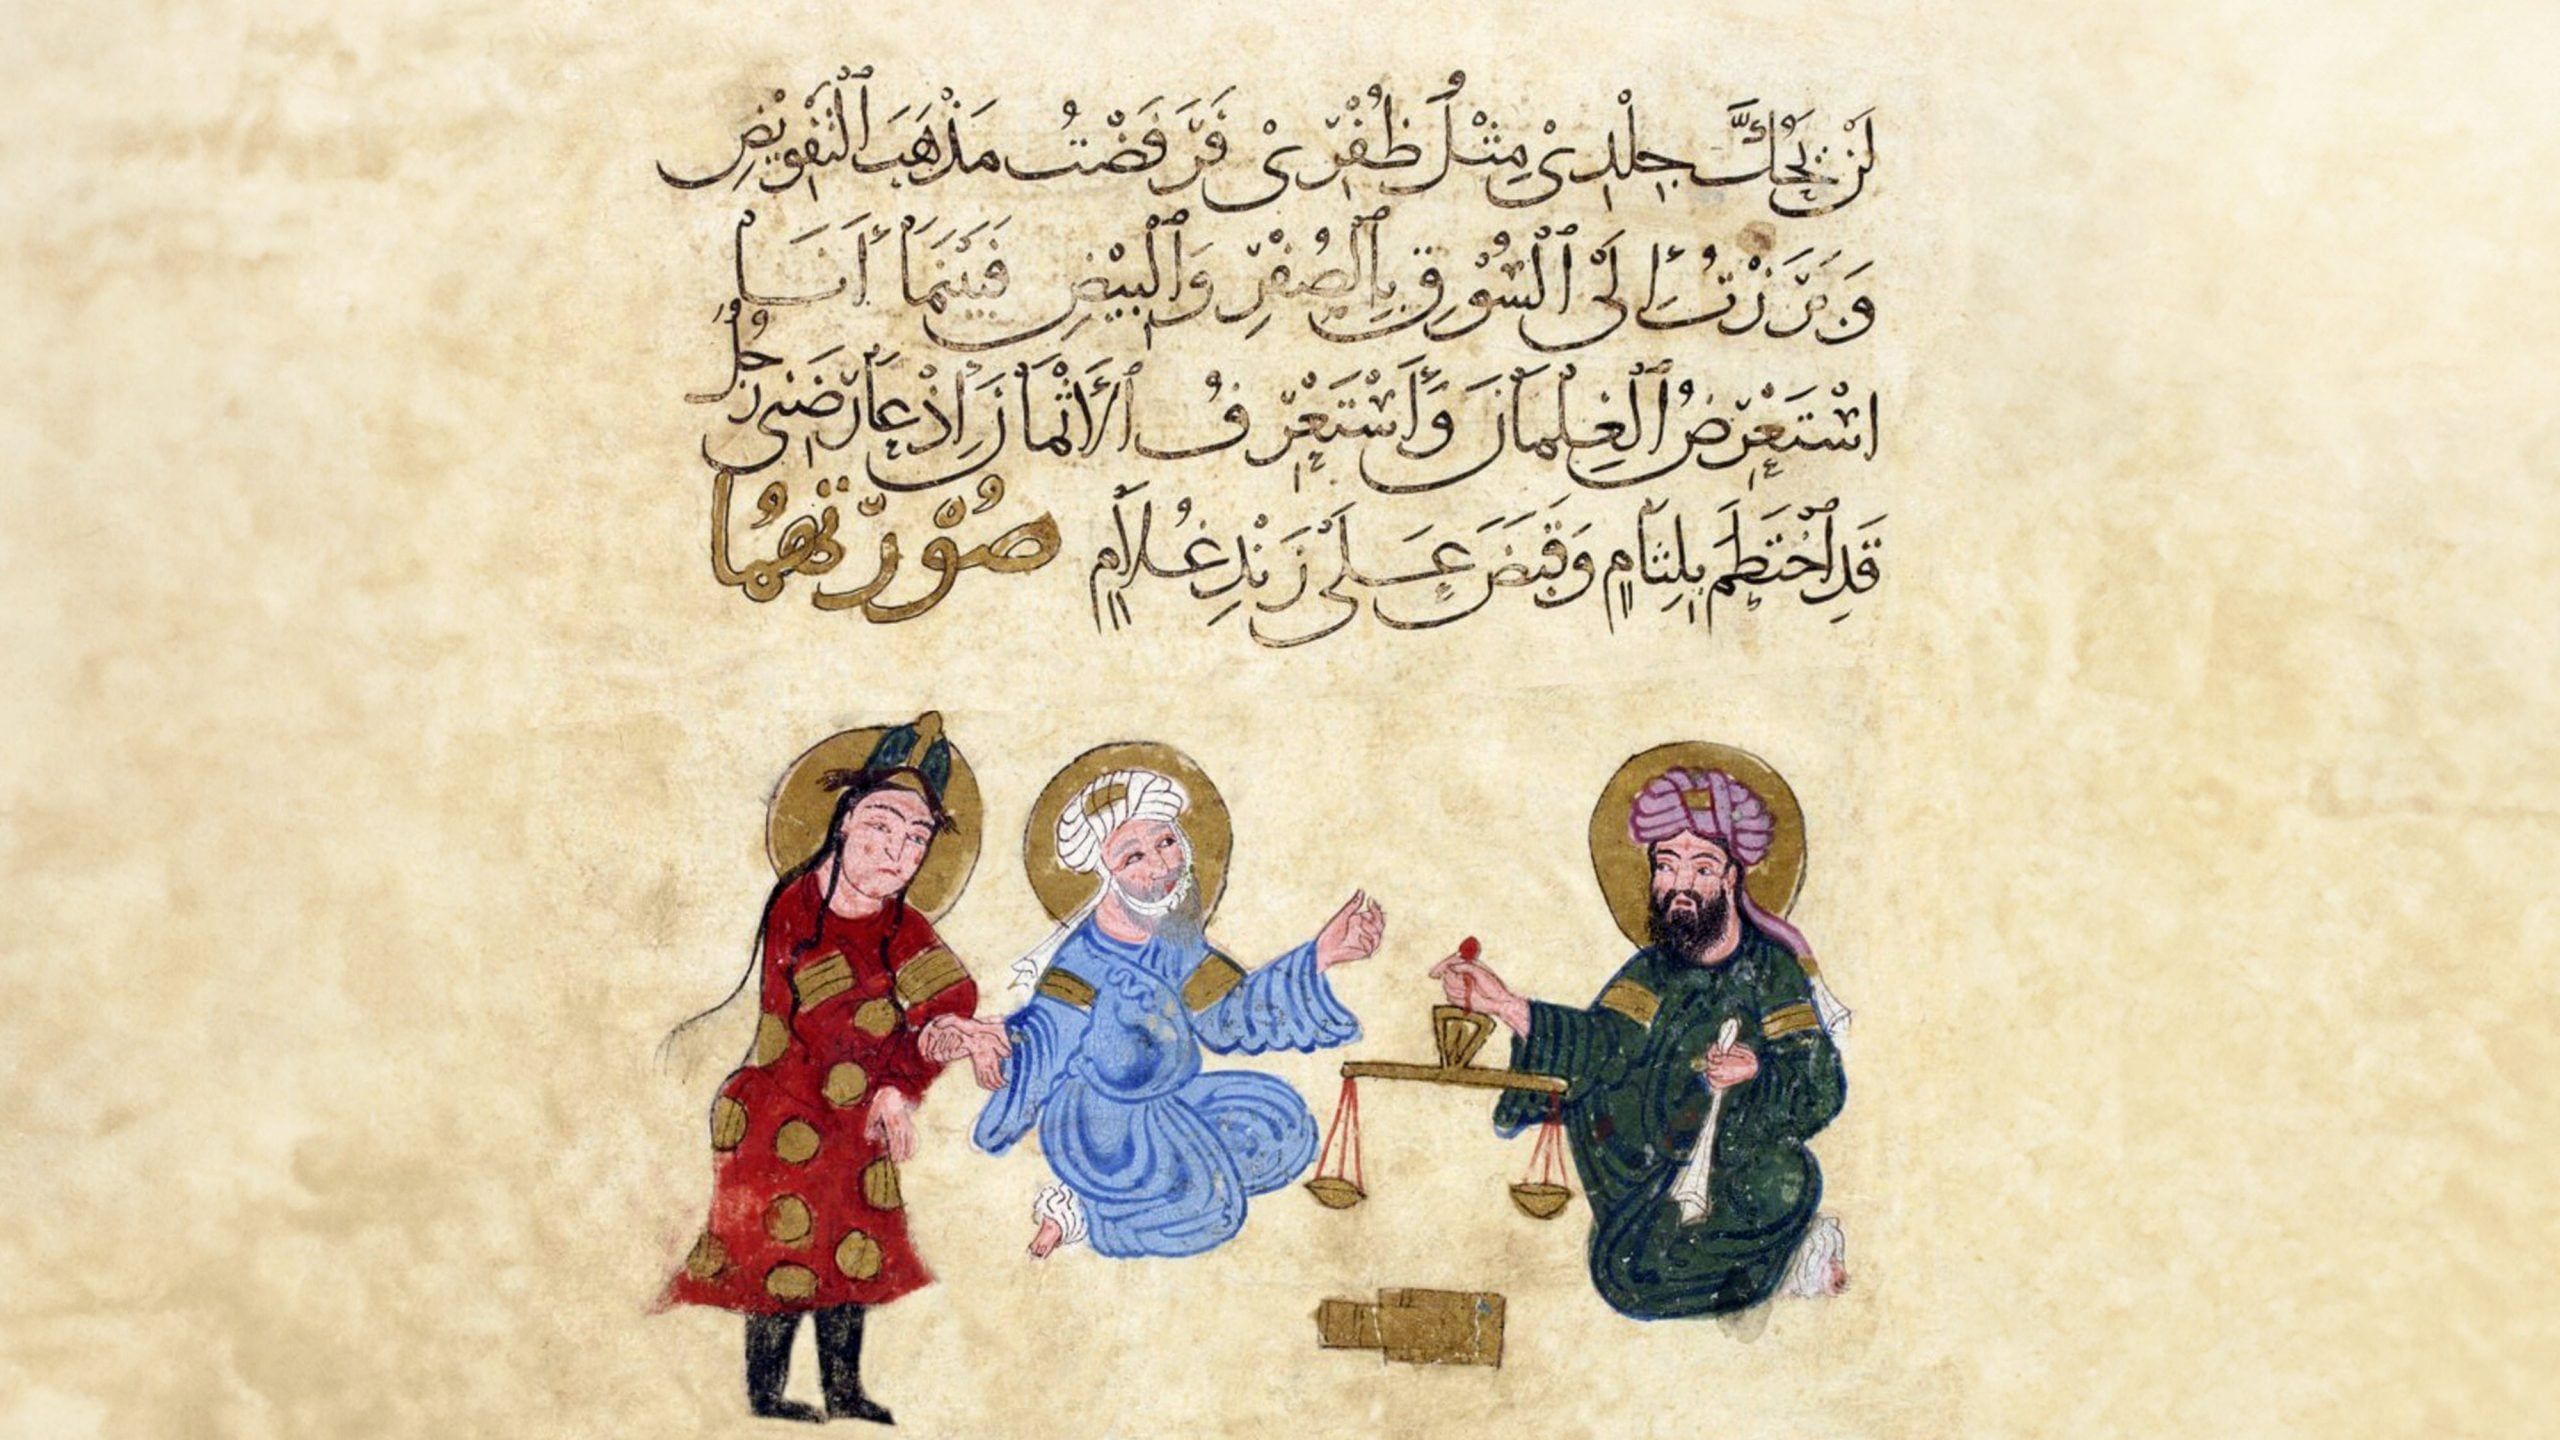 لَنْ يَحُكَّ جِلْدِيْ مِثْلُ ظُفْرِيْ فَرَفَضْتُ مَذْهَبَ ٱلْتَّفْوِيْضِ
وَبَرَزْتُ إِلَى ٱلْسُّوْقِ بِٱلْصُفْرِ وَٱلْبِيْضِ فَبَيْنَمَا أَنَا
اسْتَعْرِضُ ٱلْغِلْمَانَ وَأَسْتَعْرِفُ ٱلأَثْمَانَ إِذْ عَارَضَنِي رَجُلٌ
قَدِ ٱخْتَطَمَ بِلِثَامٍ وَقَبَضَ عَلَى زَنْدِ غُلَامٍ صُوْرَتُهُمَا